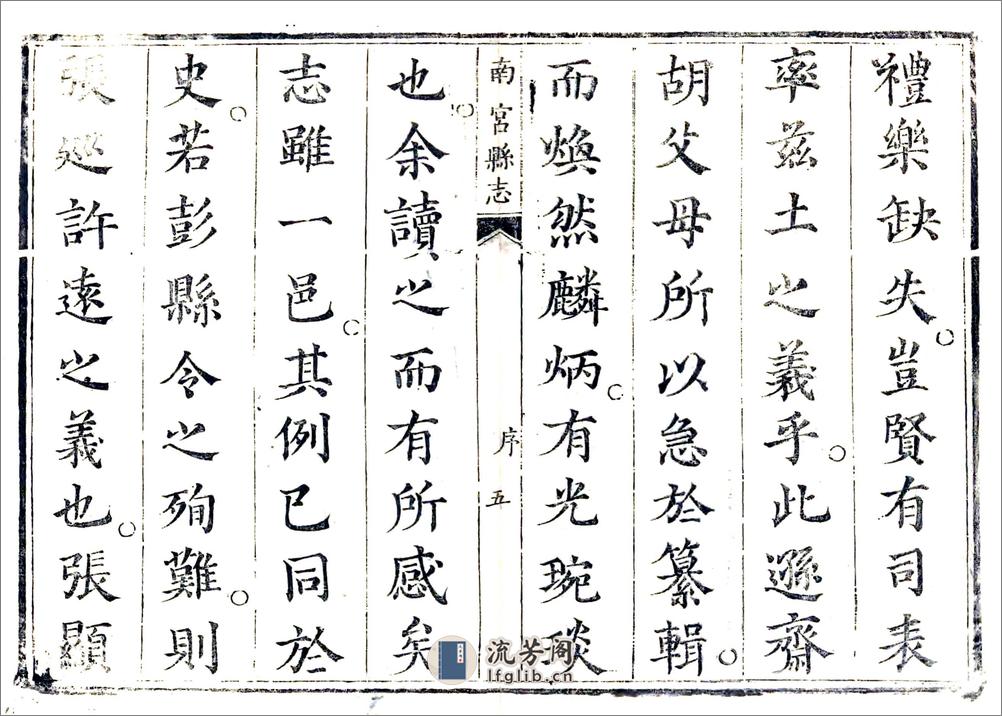 禮樂缺失豈賢有司表
率茲土之義乎此遜齋
胡父母所以急於纂輯
而煥然麟炳有光琬琰
南宮縣志
序
五
也余讀之而有所感矣
志雖一邑其例已同於
史若彭縣令之殉難則
張巡許遠之義也張顯
流芳阁
lfglib.cn